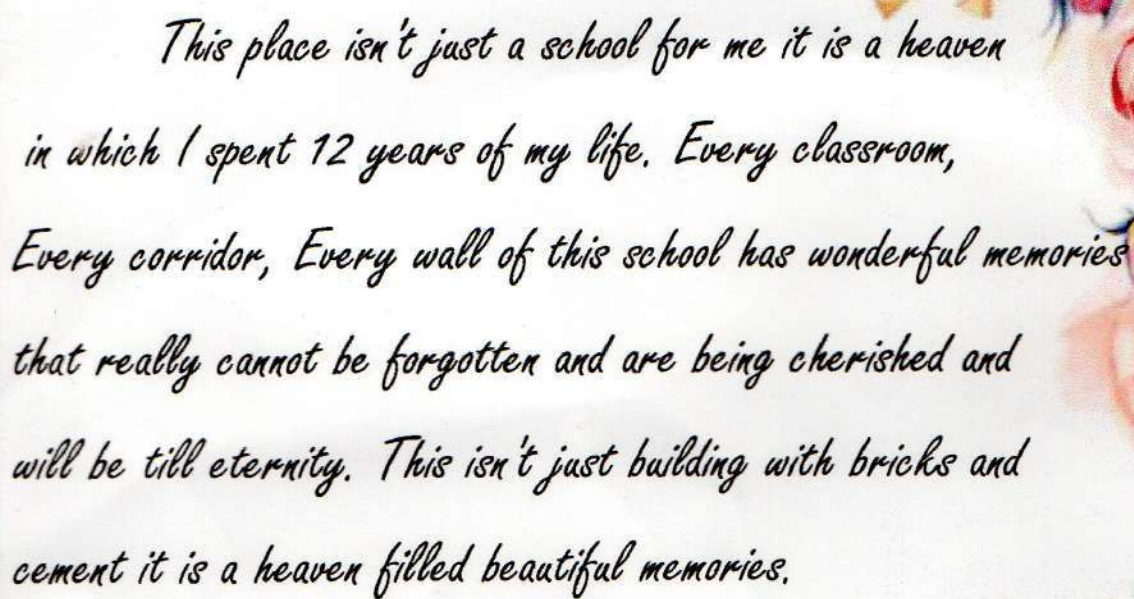 This place isn't just a school for me it is a heaven
in which I spent 12 years of my life. Every classroom,
Every corridor, Every wall of this school has wonderful memories
that really cannot be forgotten and are being cherished and
will be till eternity. This isn't just building with bricks and
cement it is a heaven filled beautiful memories.